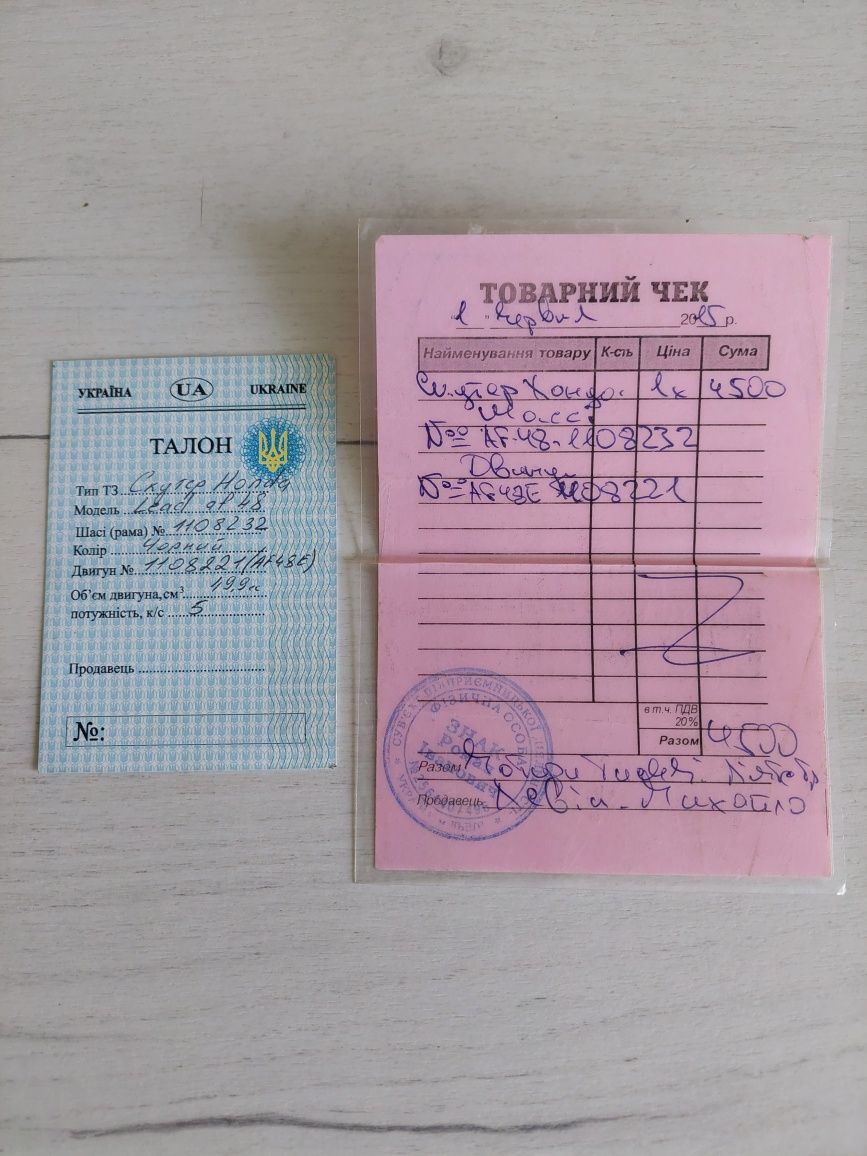 УКРАЇНА UA UKRAINE
ТАЛОН
Тип ТЗ Скутер Honda
Модель Lead af 48
Шасі (рама) № 1108232
Колір Чорний
Двигун № 1108221 (AF48E)
Об'єм двигуна, см³ 49,9
потужність, к/с 5
Продавець
№:
ТОВАРНИЙ ЧЕК
"1" червня 2015 р.
Найменування товару К-сть Ціна Сума
Скутер Хонда. 1x 4500
Шассі
№= AF-48-1108232
Двигун
№= AF48E 1108221
в т.ч. ПДВ
20%
Разом 4500
Разом Чотири тисячі П'ятсот
Продавець Михайло
СУБ'ЄКТ ПІДПРИЄМНИЦЬКОЇ ДІЯЛЬНОСТІ
ФІЗИЧНА ОСОБА
ЗНАК
УКРАЇНА